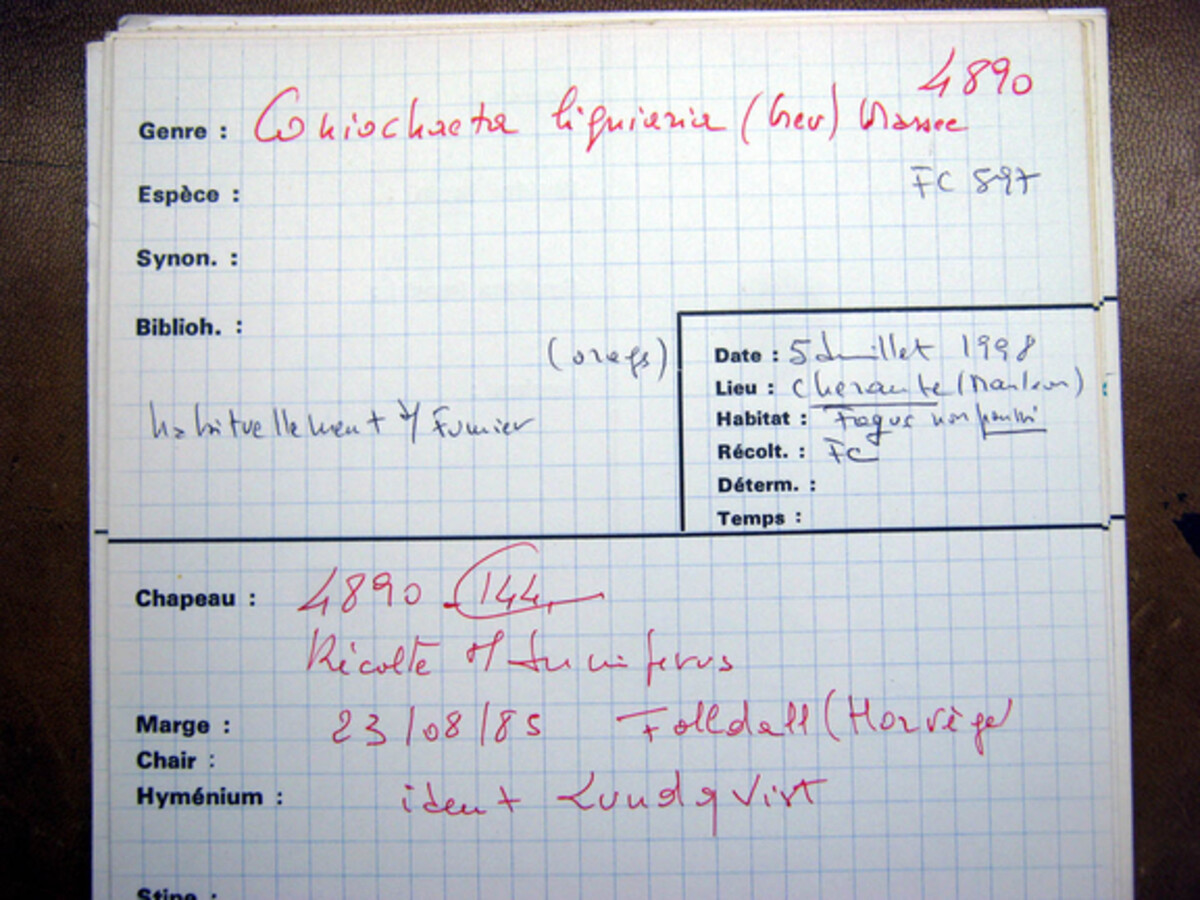 4890
Genre : Coniochaeta ligniaria (Grev) Massee
FC 597
Espèce :
Synon. :
Biblioh. :
Date : 5 Juillet 1998
Lieu : Cheraute (Mauleon)
habituellement s/ Fumier
Habitat : Fagus non
Récolt. : FC
Déterm. :
Temps :
Chapeau : 4890 144
Récolte s/ Juniperus
Marge : 23/08/85 Folldall (Norvège)
Chair :
Hyménium : ident Lundqvist
Stipe :